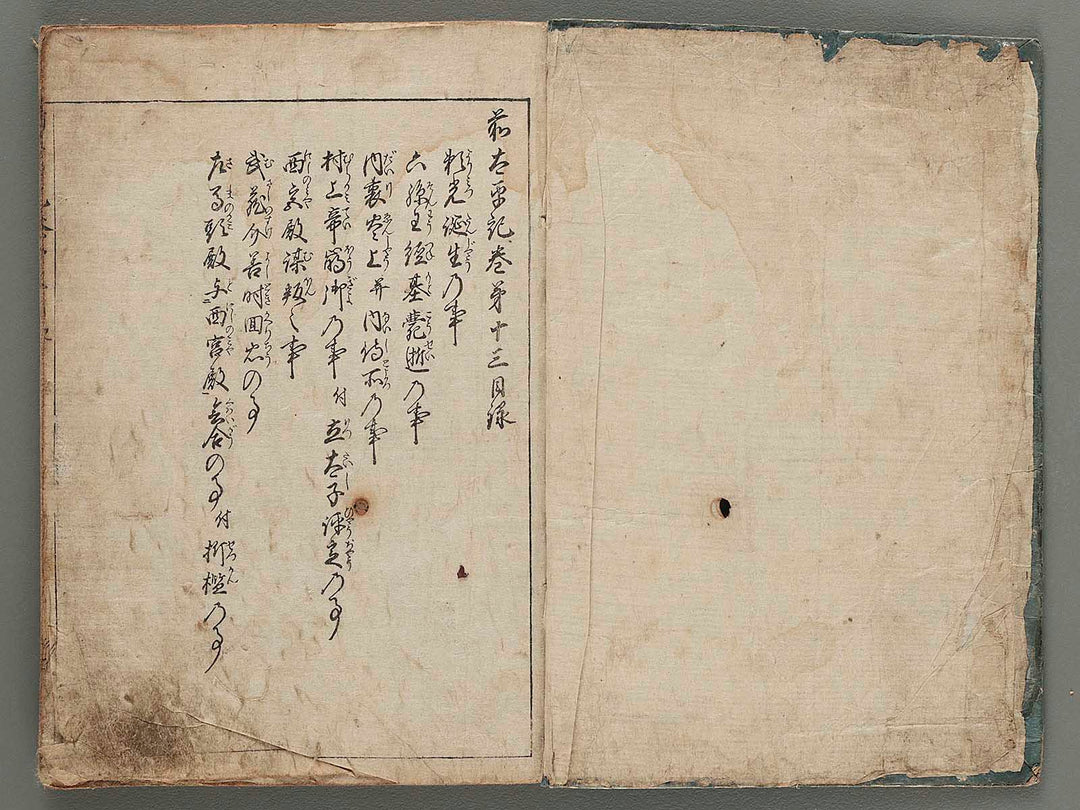 前太平記巻第十三目録
頼光誕生乃事
六孫王経基薨逝乃事
内裏炎上并内侍所乃事
村上帝崩御乃事付立太子評定乃事
西宮殿謀叛之事
武蔵介善時回忠の事
左馬頭殿与西宮殿会合の事付折檻乃事